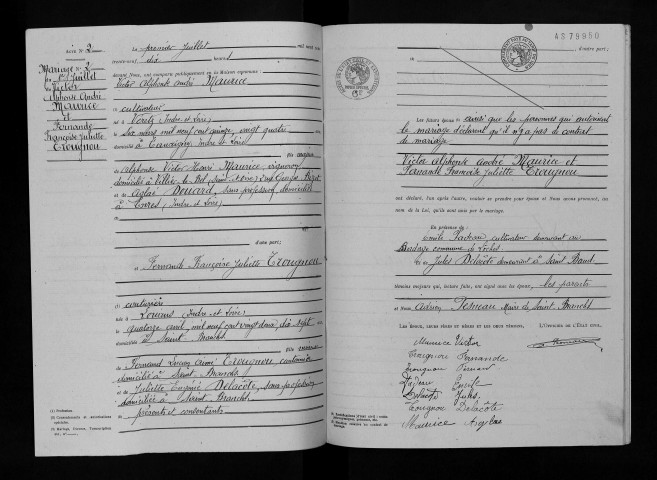 Acte N° 2
Mariage N° 2
Juillet
Victor
Alphonse André
Maurice
et
Fernande
Françoise Juliette
Trougnou
Le premier Juillet mil neuf cent
trente-neuf dix heures
devant Nous, ont comparu publiquement en la Maison commune :
Victor Alphonse André Maurice
cultivateur
né à Véretz (Indre et Loire)
le six mars mil neuf cent quinze, vingt quatre ans
domicilié à Tauxigny, Indre et Loire
fils majeur
de Alphonse Victor Henri Maurice, vigneron
domicilié à Villiers le Bel (Seine et Oise)
et de Aglaé Douard, sans profession, domiciliée
à (Indre et Loire)
d'une part ;
et Fernande Françoise Juliette Trougnou
couturière
née à Louans (Indre et Loire)
le quatorze avril mil neuf cent vingt deux, dix sept ans
domiciliée à Saint Branchs
fille mineure
de Fernand Aimé Trougnou, cantonnier
domicilié à Saint Branchs
et de Juliette Eugénie Delacôte, sans profession
domiciliée à Saint Branchs
présents et consentants
A379950
d'autre part ;
Les futurs époux ainsi que les personnes qui autorisent
le mariage déclarent qu'il n'y a pas de contrat
de mariage
Victor Alphonse André Maurice et
Fernande Françoise Juliette Trougnou
ont déclaré, l'un après l'autre, vouloir se prendre pour époux et Nous avons prononcé, au
nom de la Loi, qu'ils sont unis par le mariage.
En présence de
Emile Padeau cultivateur demeurant au
commune de Loches
et de Jules Delacôte demeurant à Saint Bauld
témoins majeurs qui, lecture faite, ont signé avec les époux, les parents
et Nous Adrien Maire de Saint Branchs
Les époux, leurs pères et mères et les deux témoins, L'officier de l'état civil,
Maurice Victor
Trougnou Fernande
Trougnou Fernand
Padeau Emile
Delacôte Jules
Trougnou Delacôte
Maurice